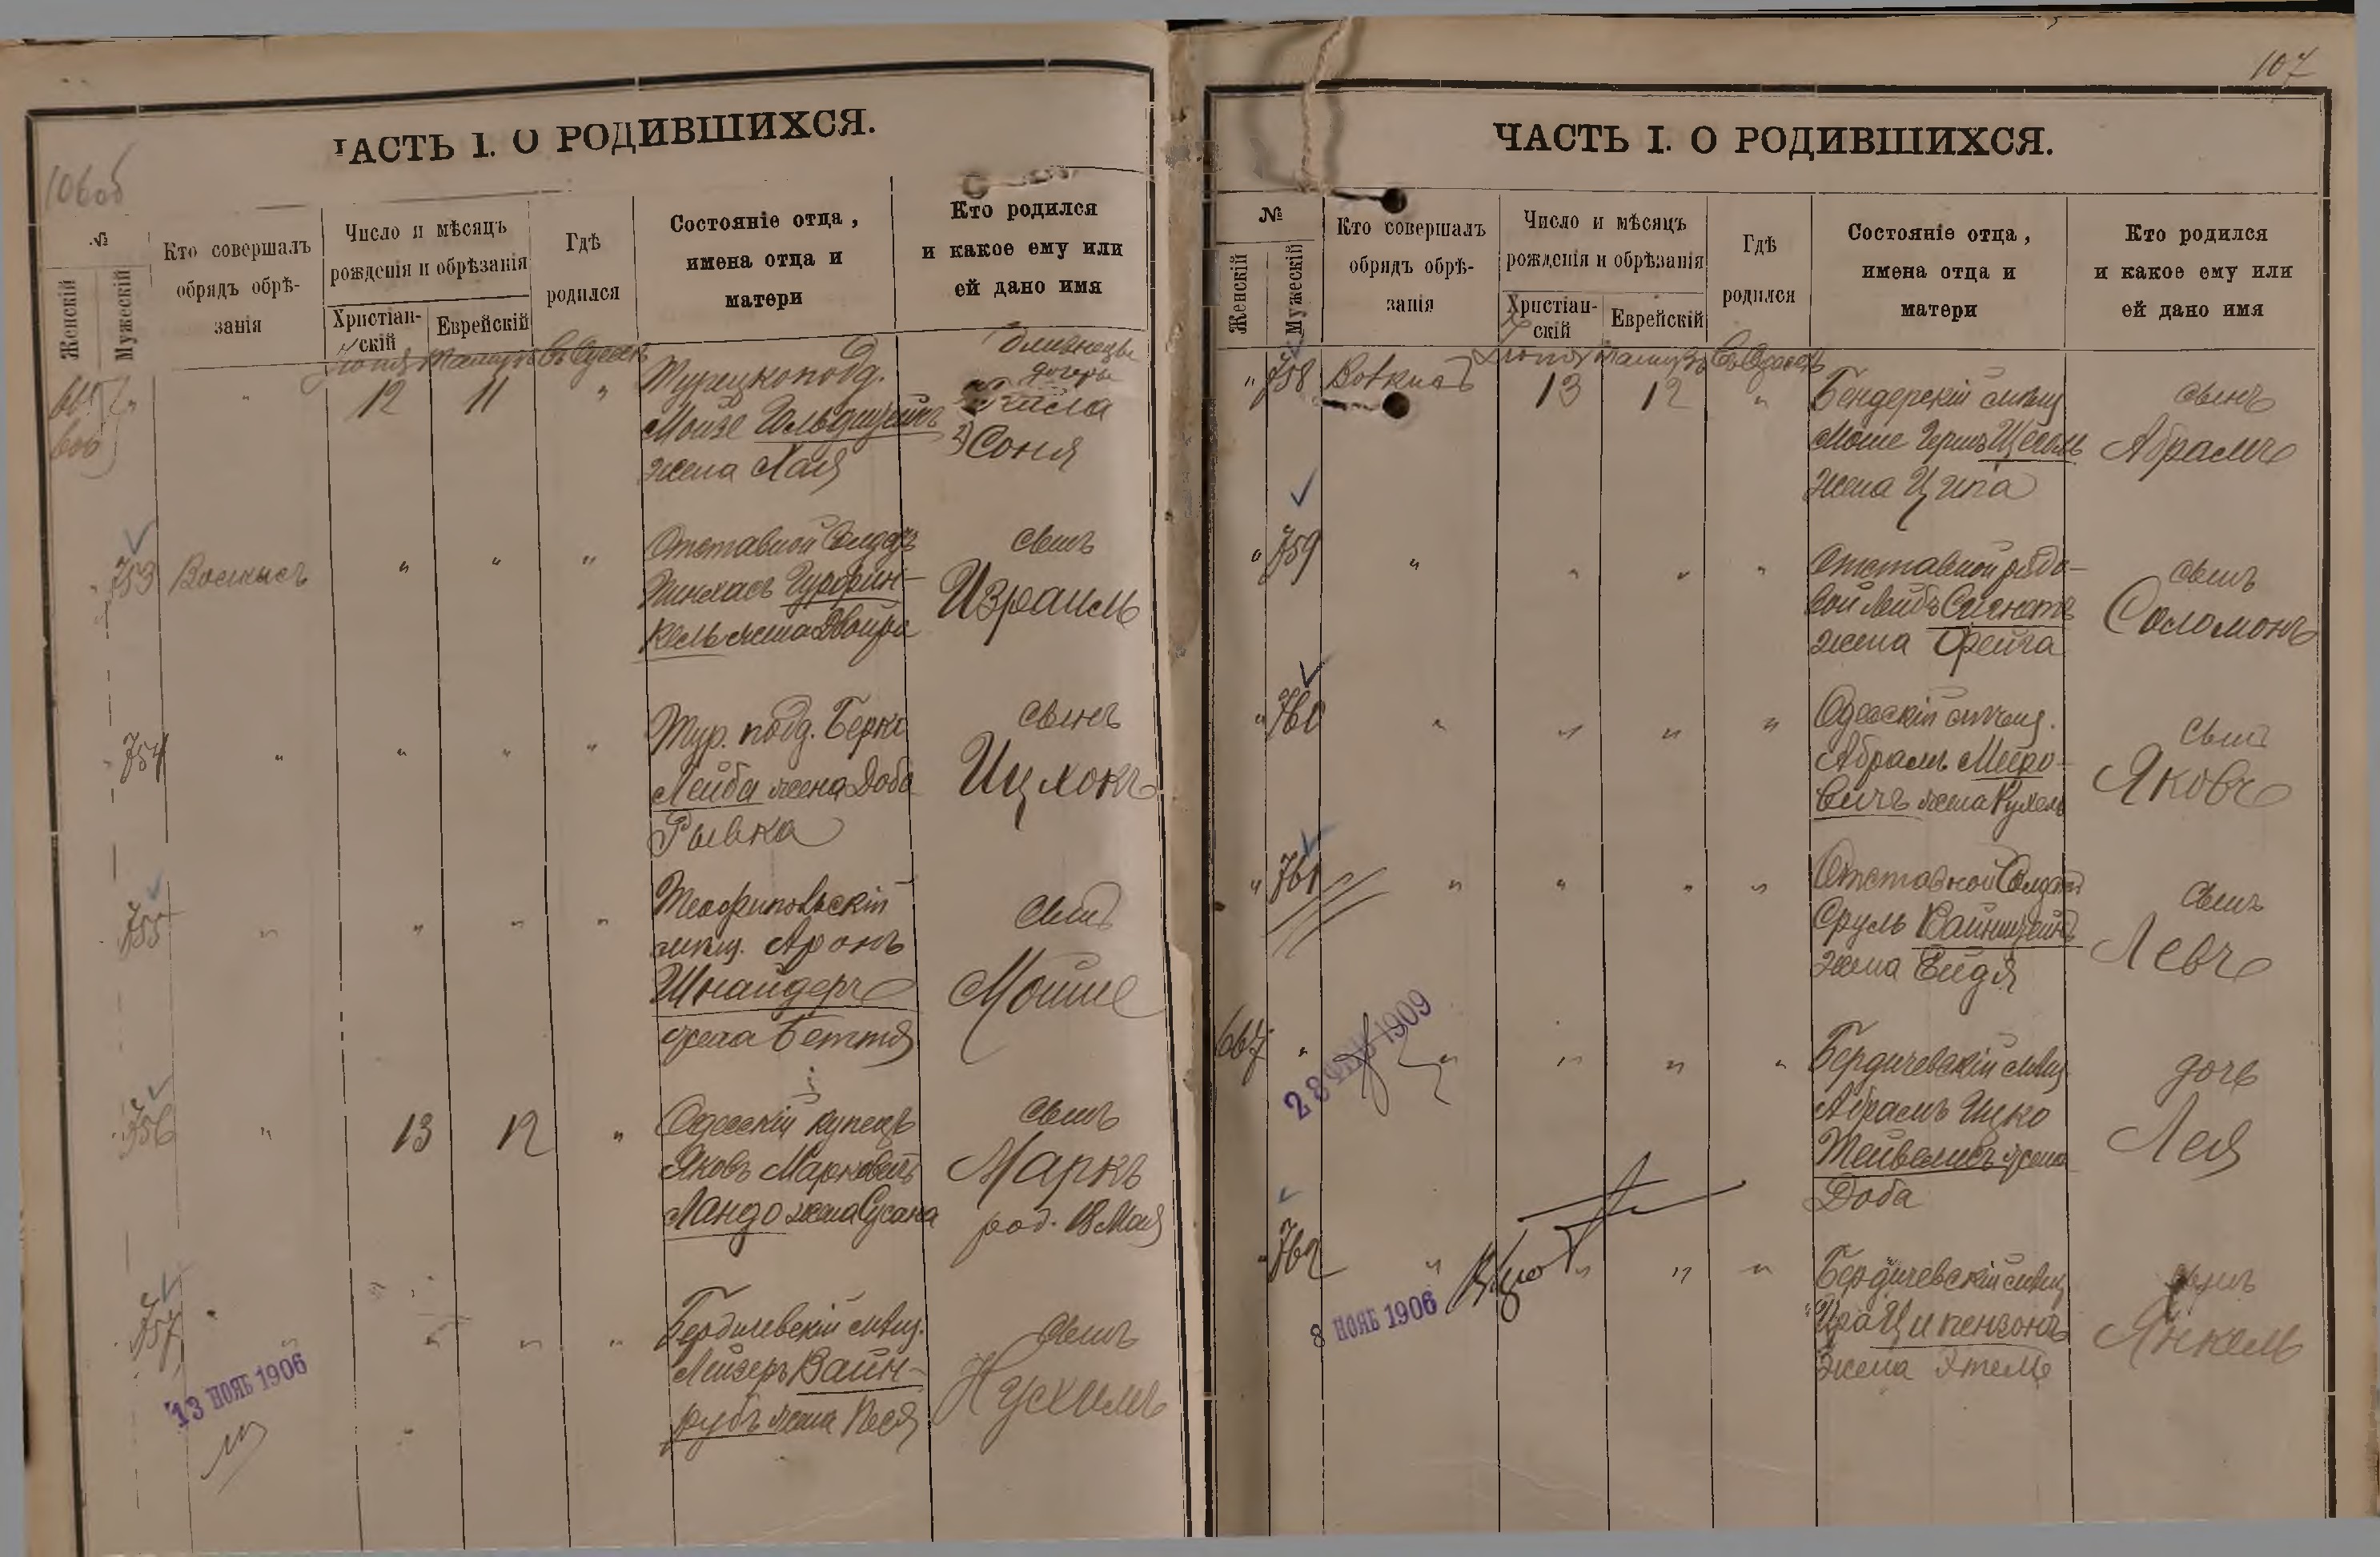 106об
ЧАСТЬ I. О РОДИВШИХСЯ.
№
Женскій
Мужескій
Кто совершалъ
обрядъ обрѣ-
занія
Число и мѣсяцъ
рожденія и обрѣзанія
Христіан-
скій
Еврейскій
Гдѣ
родился
Состояніе отца,
имена отца и
матери
Кто родился
и какое ему или
ей дано имя
Іюня Тамуз Въ Одессѣ
665 666 " " 12 11 "
Турецкопод.
Мойзе Гольдштейнъ
жена Хая
близнецы
дочери
2) Соня
" 753 " " "
Отставной Солдатъ
Пинхасъ Гурфин-
кель жена Двойра
сынъ
Израиль
" 754 " " " "
Тур. под. Берко
Лейба жена Доба
Рывка
сынъ
Ицхокъ
755 " " " "
Теофипольскій
мѣщ. Аронъ
Шнайдеръ
жена Бетти
сынъ
Мойше
756 " 13 12 "
Одесскій купецъ
Яковъ Марковичъ
Ландо жена Сусана
сынъ
Маркъ
род. 18 Мая
757 " " " "
Бердичевскій мѣщ.
Лейзеръ Вайн-
рубъ жена Песя
сынъ
Нусхимъ
13 НОЯБ 1906
107
ЧАСТЬ I. О РОДИВШИХСЯ.
№
Женскій
Мужескій
Кто совершалъ
обрядъ обрѣ-
занія
Число и мѣсяцъ
рожденія и обрѣзанія
Христіан-
скій
Еврейскій
Гдѣ
родился
Состояніе отца,
имена отца и
матери
Кто родился
и какое ему или
ей дано имя
Іюня Тамузъ Въ Одессѣ
" 758 13 12 "
Бендерскій мѣщ
Моше Гершъ Щеголь
жена Ципа
сынъ
Абрамъ
" 759 " " " "
Отставной рядо-
вой Лейбъ
жена Фейга
сынъ
Соломонъ
" 760 " " " "
Одесскій мѣщ.
Абрамъ Мееро-
вичъ жена Рухель
сынъ
Яковъ
" 761 " " " "
Отставной Солдатъ
Сруль Вайнштейнъ
жена Ейдя
сынъ
Левъ
667 " " " " "
Бердичевскій мѣщ
Абрамъ Ицко
Тейвелисъ жена
Доба
дочь
Лея
28 1909
" 762 " " " "
Бердичевскій мѣщ
Ципензонъ
жена Этеле
сынъ
Янкель
8 НОЯБ 1906